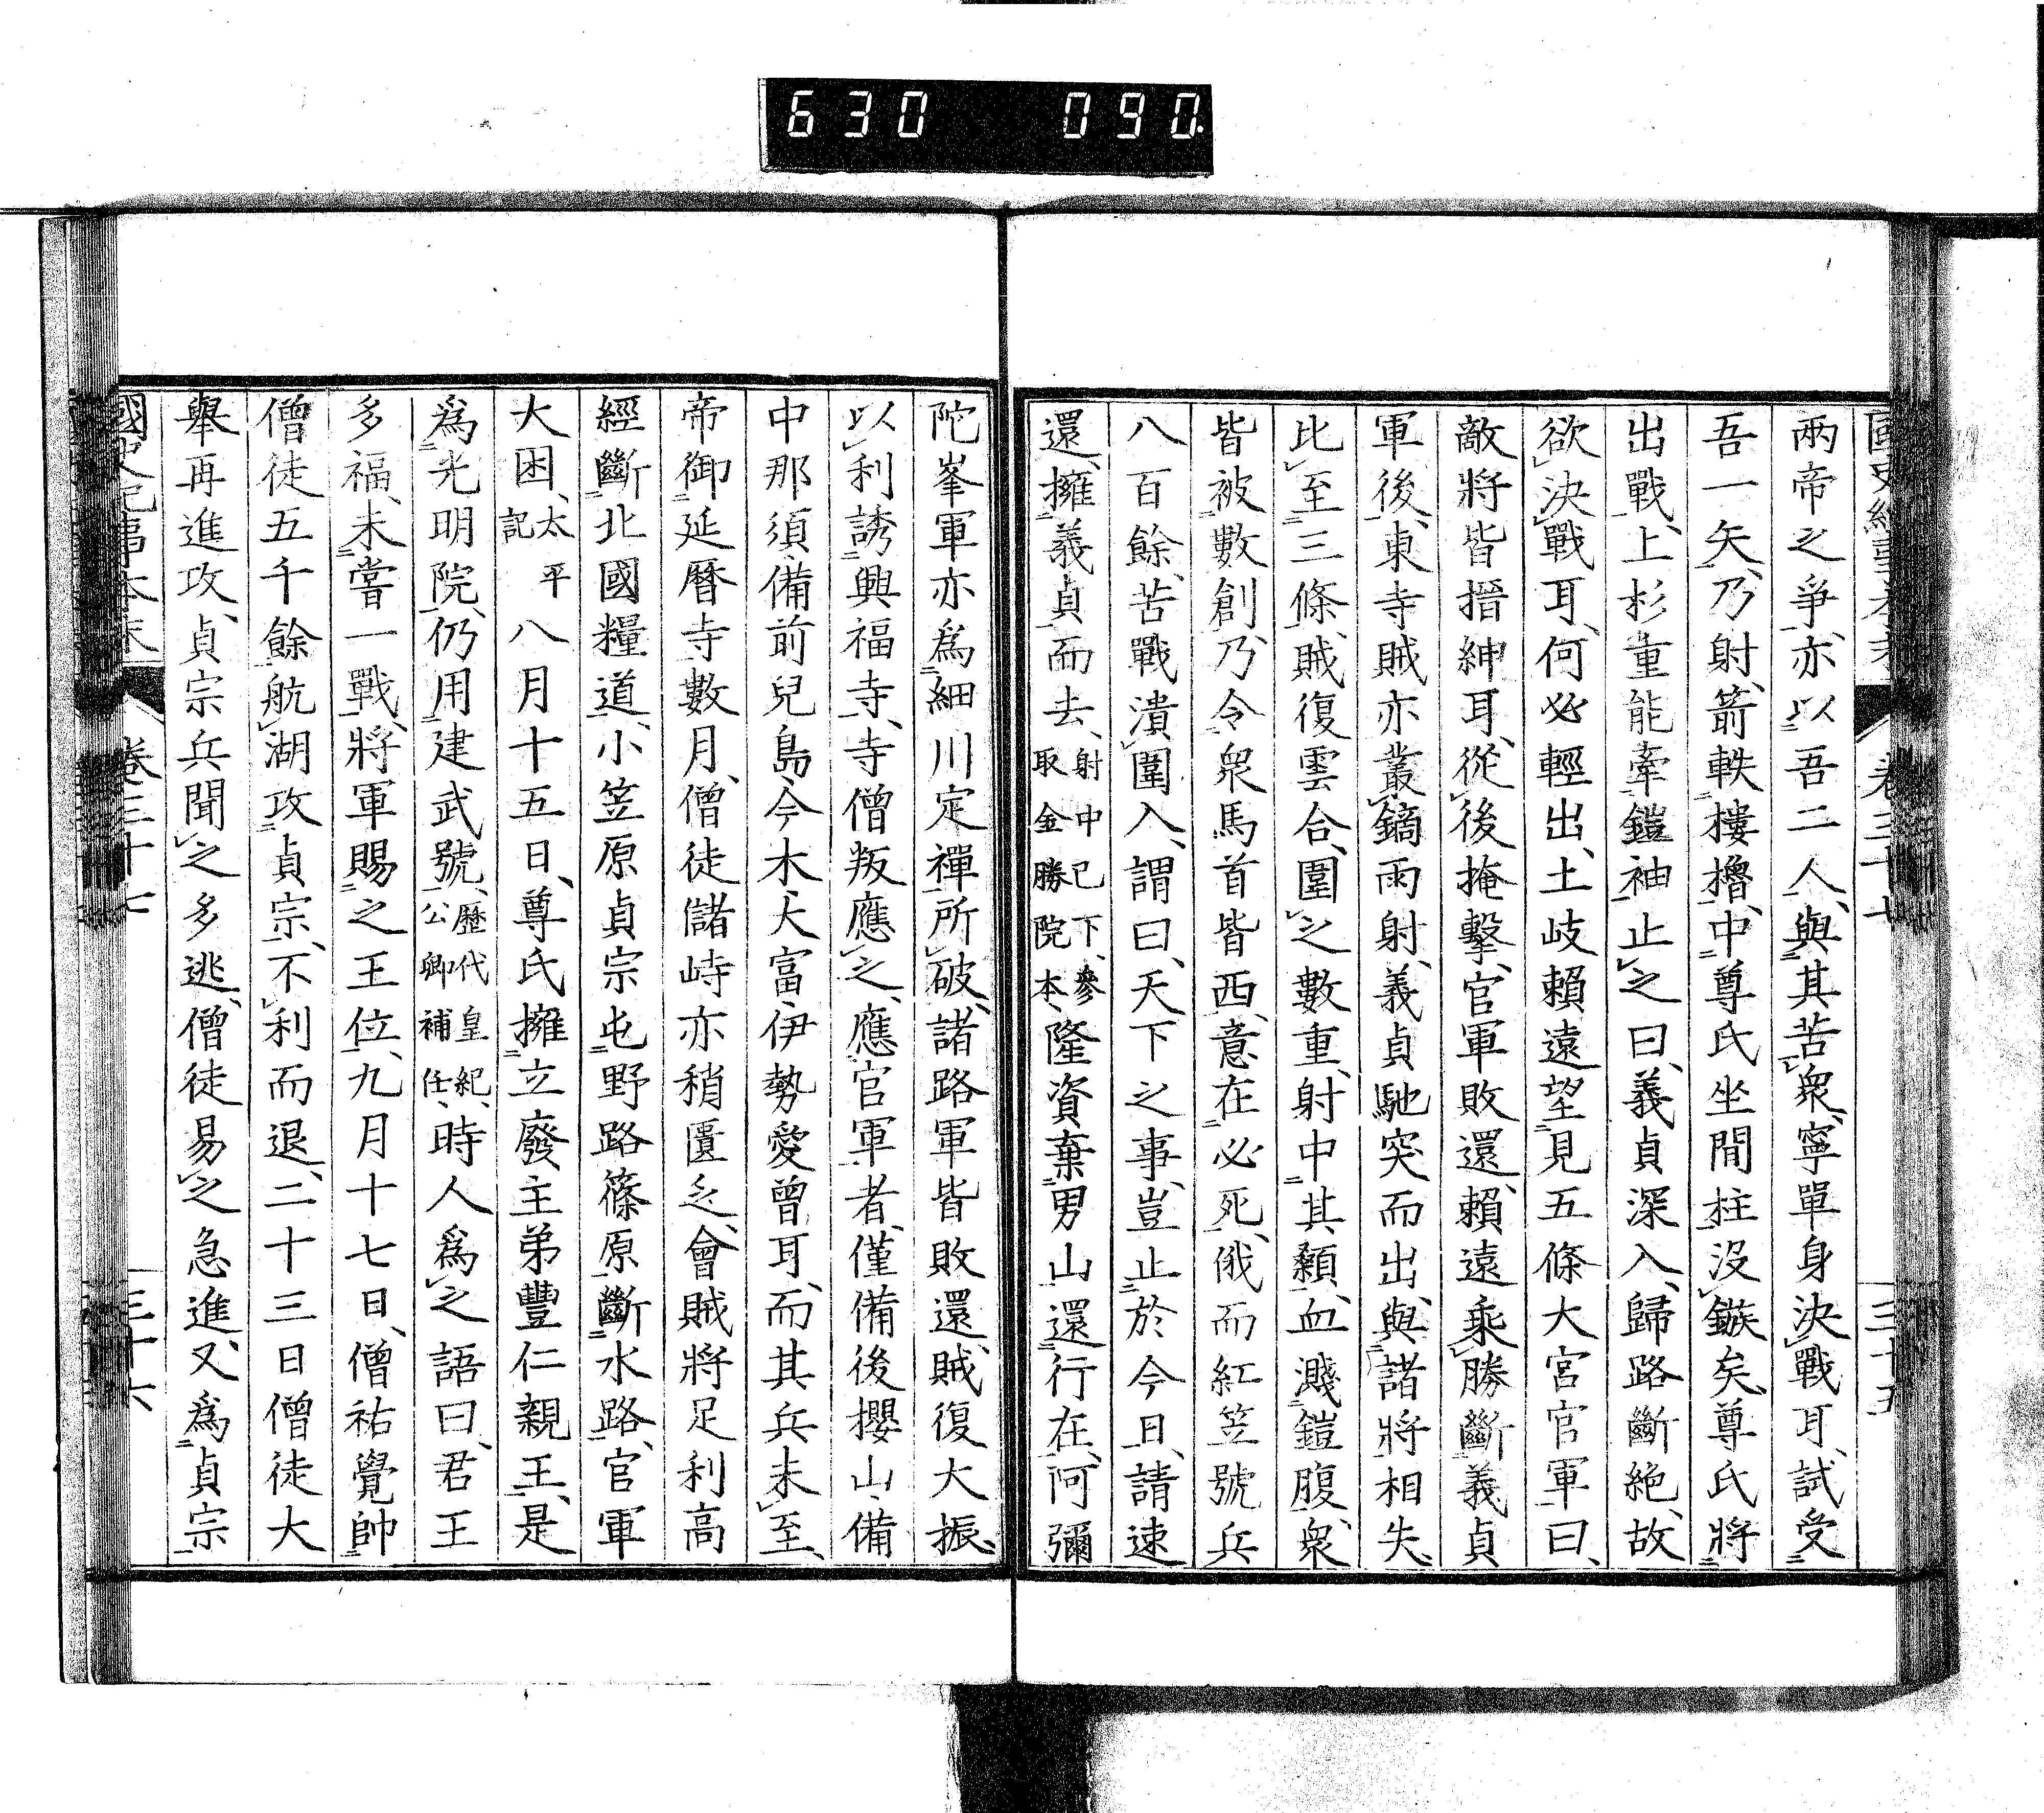 630 090
國史紀事本末 卷三十七 三十五
兩帝之爭、亦以吾二人、與其苦衆、寧單身決戰耳、試受
吾一矢、乃射、箭軼樓櫓、中尊氏坐間柱、沒鏃矣、尊氏將
出戰、上杉重能牽鎧袖止之曰、義貞深入、歸路斷絶、故
欲決戰耳、何必輕出、土岐賴遠望見五條大宮官軍曰、
敵將皆搢紳耳、從後掩擊、官軍敗還、賴遠乘勝斷義貞
軍後、東寺賊亦叢鏑雨射、義貞馳突而出、與諸將相失、
比至三條、賊復雲合、圍之數重、射中其額、血濺鎧腹、衆
皆被數創、乃令衆馬首皆西、意在必死、俄而紅笠號兵
八百餘、苦戰潰圍入、謂曰、天下之事、豈止於今日、請速
還、擁義貞而去、射中已下、參取金勝院本、隆資棄男山還行在、阿彌
陀峯軍亦爲細川定禪所破、諸路軍皆敗還、賊復大振、
以利誘興福寺、寺僧叛應之、應官軍者、僅備後櫻山、備
中那須、備前兒島、今木、大富、伊勢愛曾耳、而其兵未至、
帝御延曆寺數月、僧徒儲峙亦稍匱乏、會賊將足利高
經斷北國糧道、小笠原貞宗屯野路篠原、斷水路、官軍
大困、太平記 八月十五日、尊氏擁立廢主弟豐仁親王、是
爲光明院、仍用建武號、歷代皇紀、公卿補任、時人爲之語曰、君王
多福、未嘗一戰、將軍賜之王位、九月十七日、僧祐覺帥
僧徒五千餘航湖攻貞宗、不利而退、二十三日僧徒大
舉再進攻、貞宗兵聞之多逃、僧徒易之急進、又爲貞宗
國史紀事本末 卷三十七 三十六